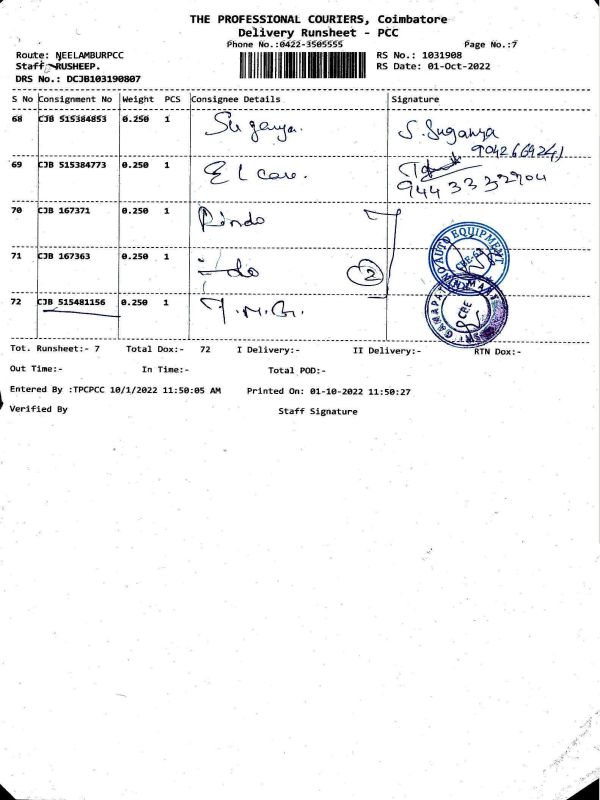 THE PROFESSIONAL COURIERS, Coimbatore
Delivery Runsheet - PCC
Phone No.:0422-3505555 Page No.:7
Route: NEELAMBURPCC RS No.: 1031908
Staff RUSHEEP. RS Date: 01-Oct-2022
DRS No.: DCJB103190807
S No Consignment No Weight PCS Consignee Details Signature
68 CJB 515384853 0.250 1 Suganya. S. Suganya
9042669241
69 CJB 515384773 0.250 1 El care.
9443332904
70 CJB 167371 0.250 1 Pindo
71 CJB 167363 0.250 1 2
AUTO EQUIPMENT
CBE-62
72 CJB 515481156 0.250 1 T.M.G.
CBE
Tot. Runsheet:- 7 Total Dox:- 72 I Delivery:- II Delivery:- RTN Dox:-
Out Time:- In Time:- Total POD:-
Entered By :TPCPCC 10/1/2022 11:50:05 AM Printed On: 01-10-2022 11:50:27
Verified By Staff Signature